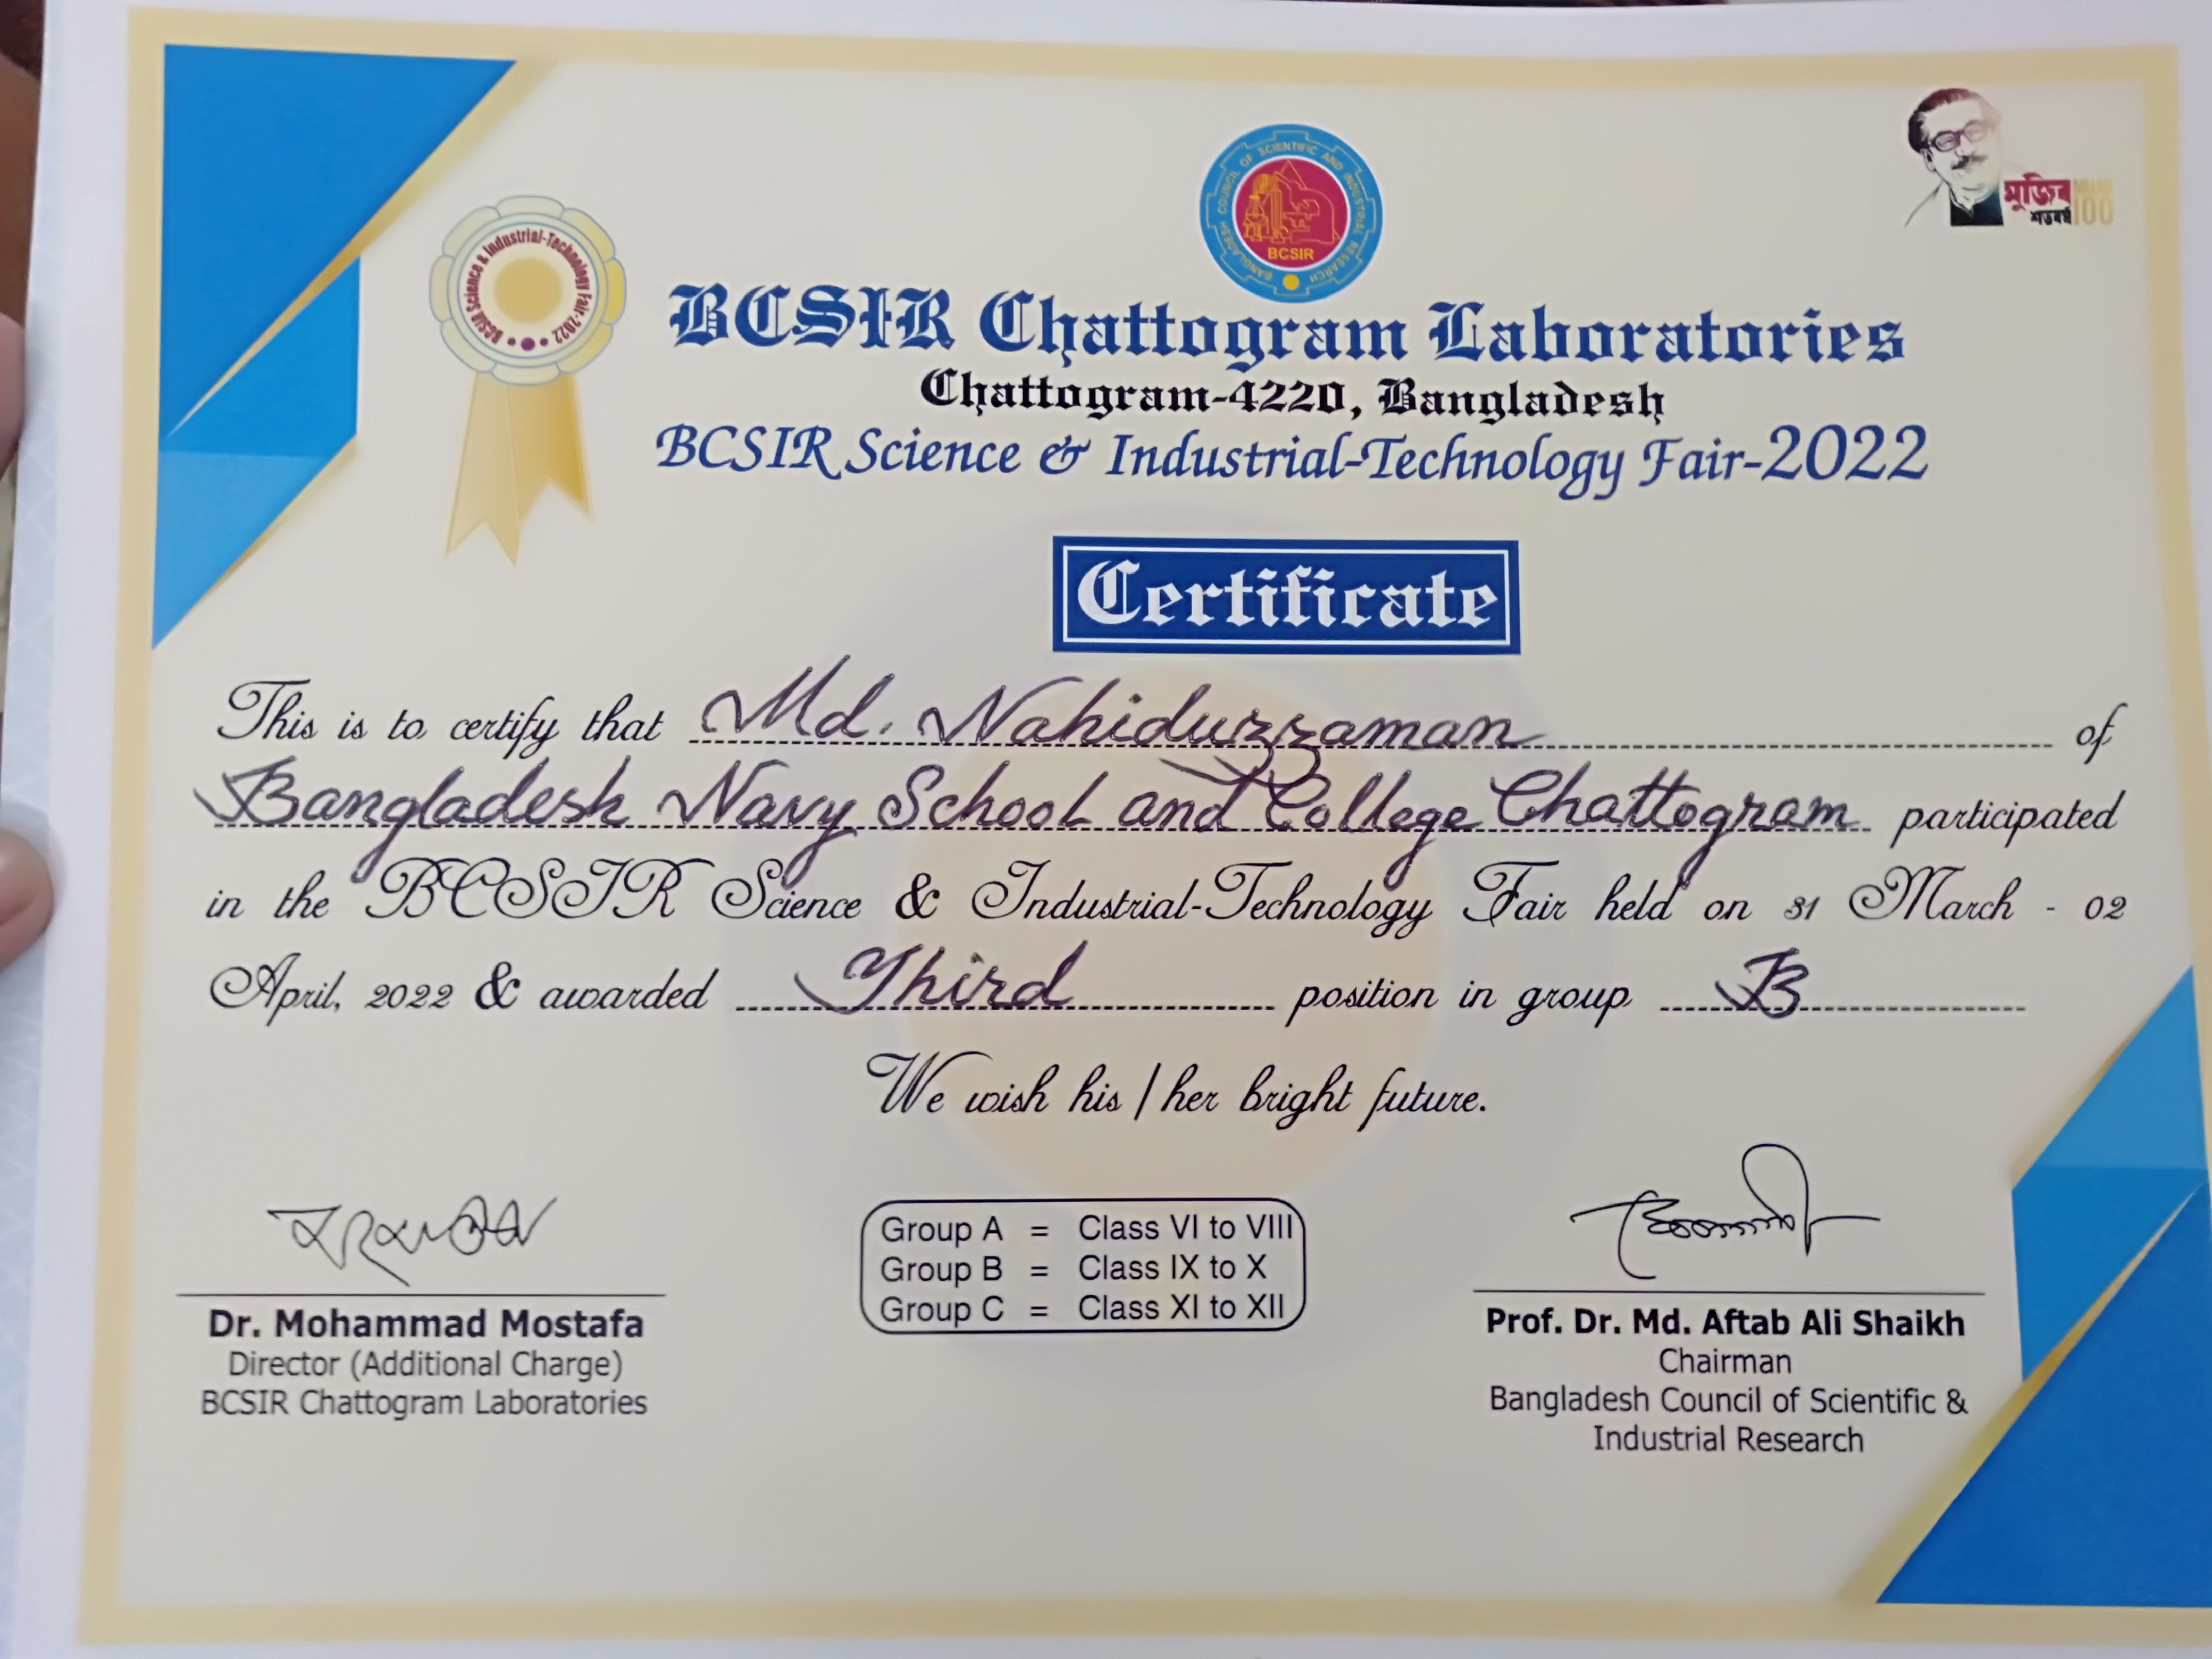 BANGLADESH COUNCIL OF SCIENTIFIC AND INDUSTRIAL RESEARCH
BCSIR
মুজিব
শতবর্ষ
MUJIB
100
BCSIR Science & Industrial-Technology Fair-2022
BCSIR Chattogram Laboratories
Chattogram-4220, Bangladesh
BCSIR Science & Industrial-Technology Fair-2022
Certificate
This is to certify that Md. Nahiduzzaman of
Bangladesh Navy School and College Chattogram participated
in the BCSIR Science & Industrial-Technology Fair held on 31 March - 02
April, 2022 & awarded Third position in group B
We wish his/her bright future.
Group A = Class VI to VIII
Group B = Class IX to X
Group C = Class XI to XII
Dr. Mohammad Mostafa
Director (Additional Charge)
BCSIR Chattogram Laboratories
Prof. Dr. Md. Aftab Ali Shaikh
Chairman
Bangladesh Council of Scientific &
Industrial Research